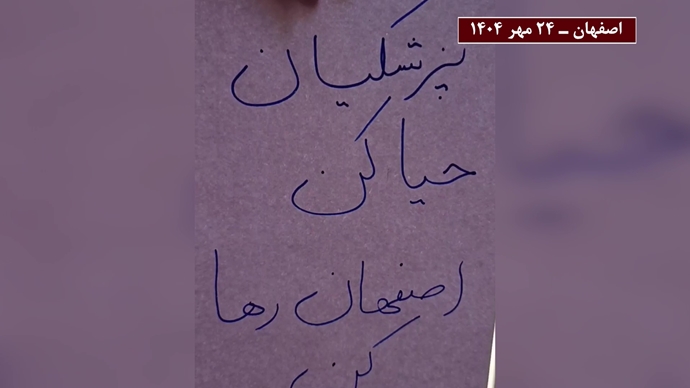 اصفهان ــ ۲۴ مهر ۱۴۰۴
پزشکیان
حیا کن
اصفهان رها
کن